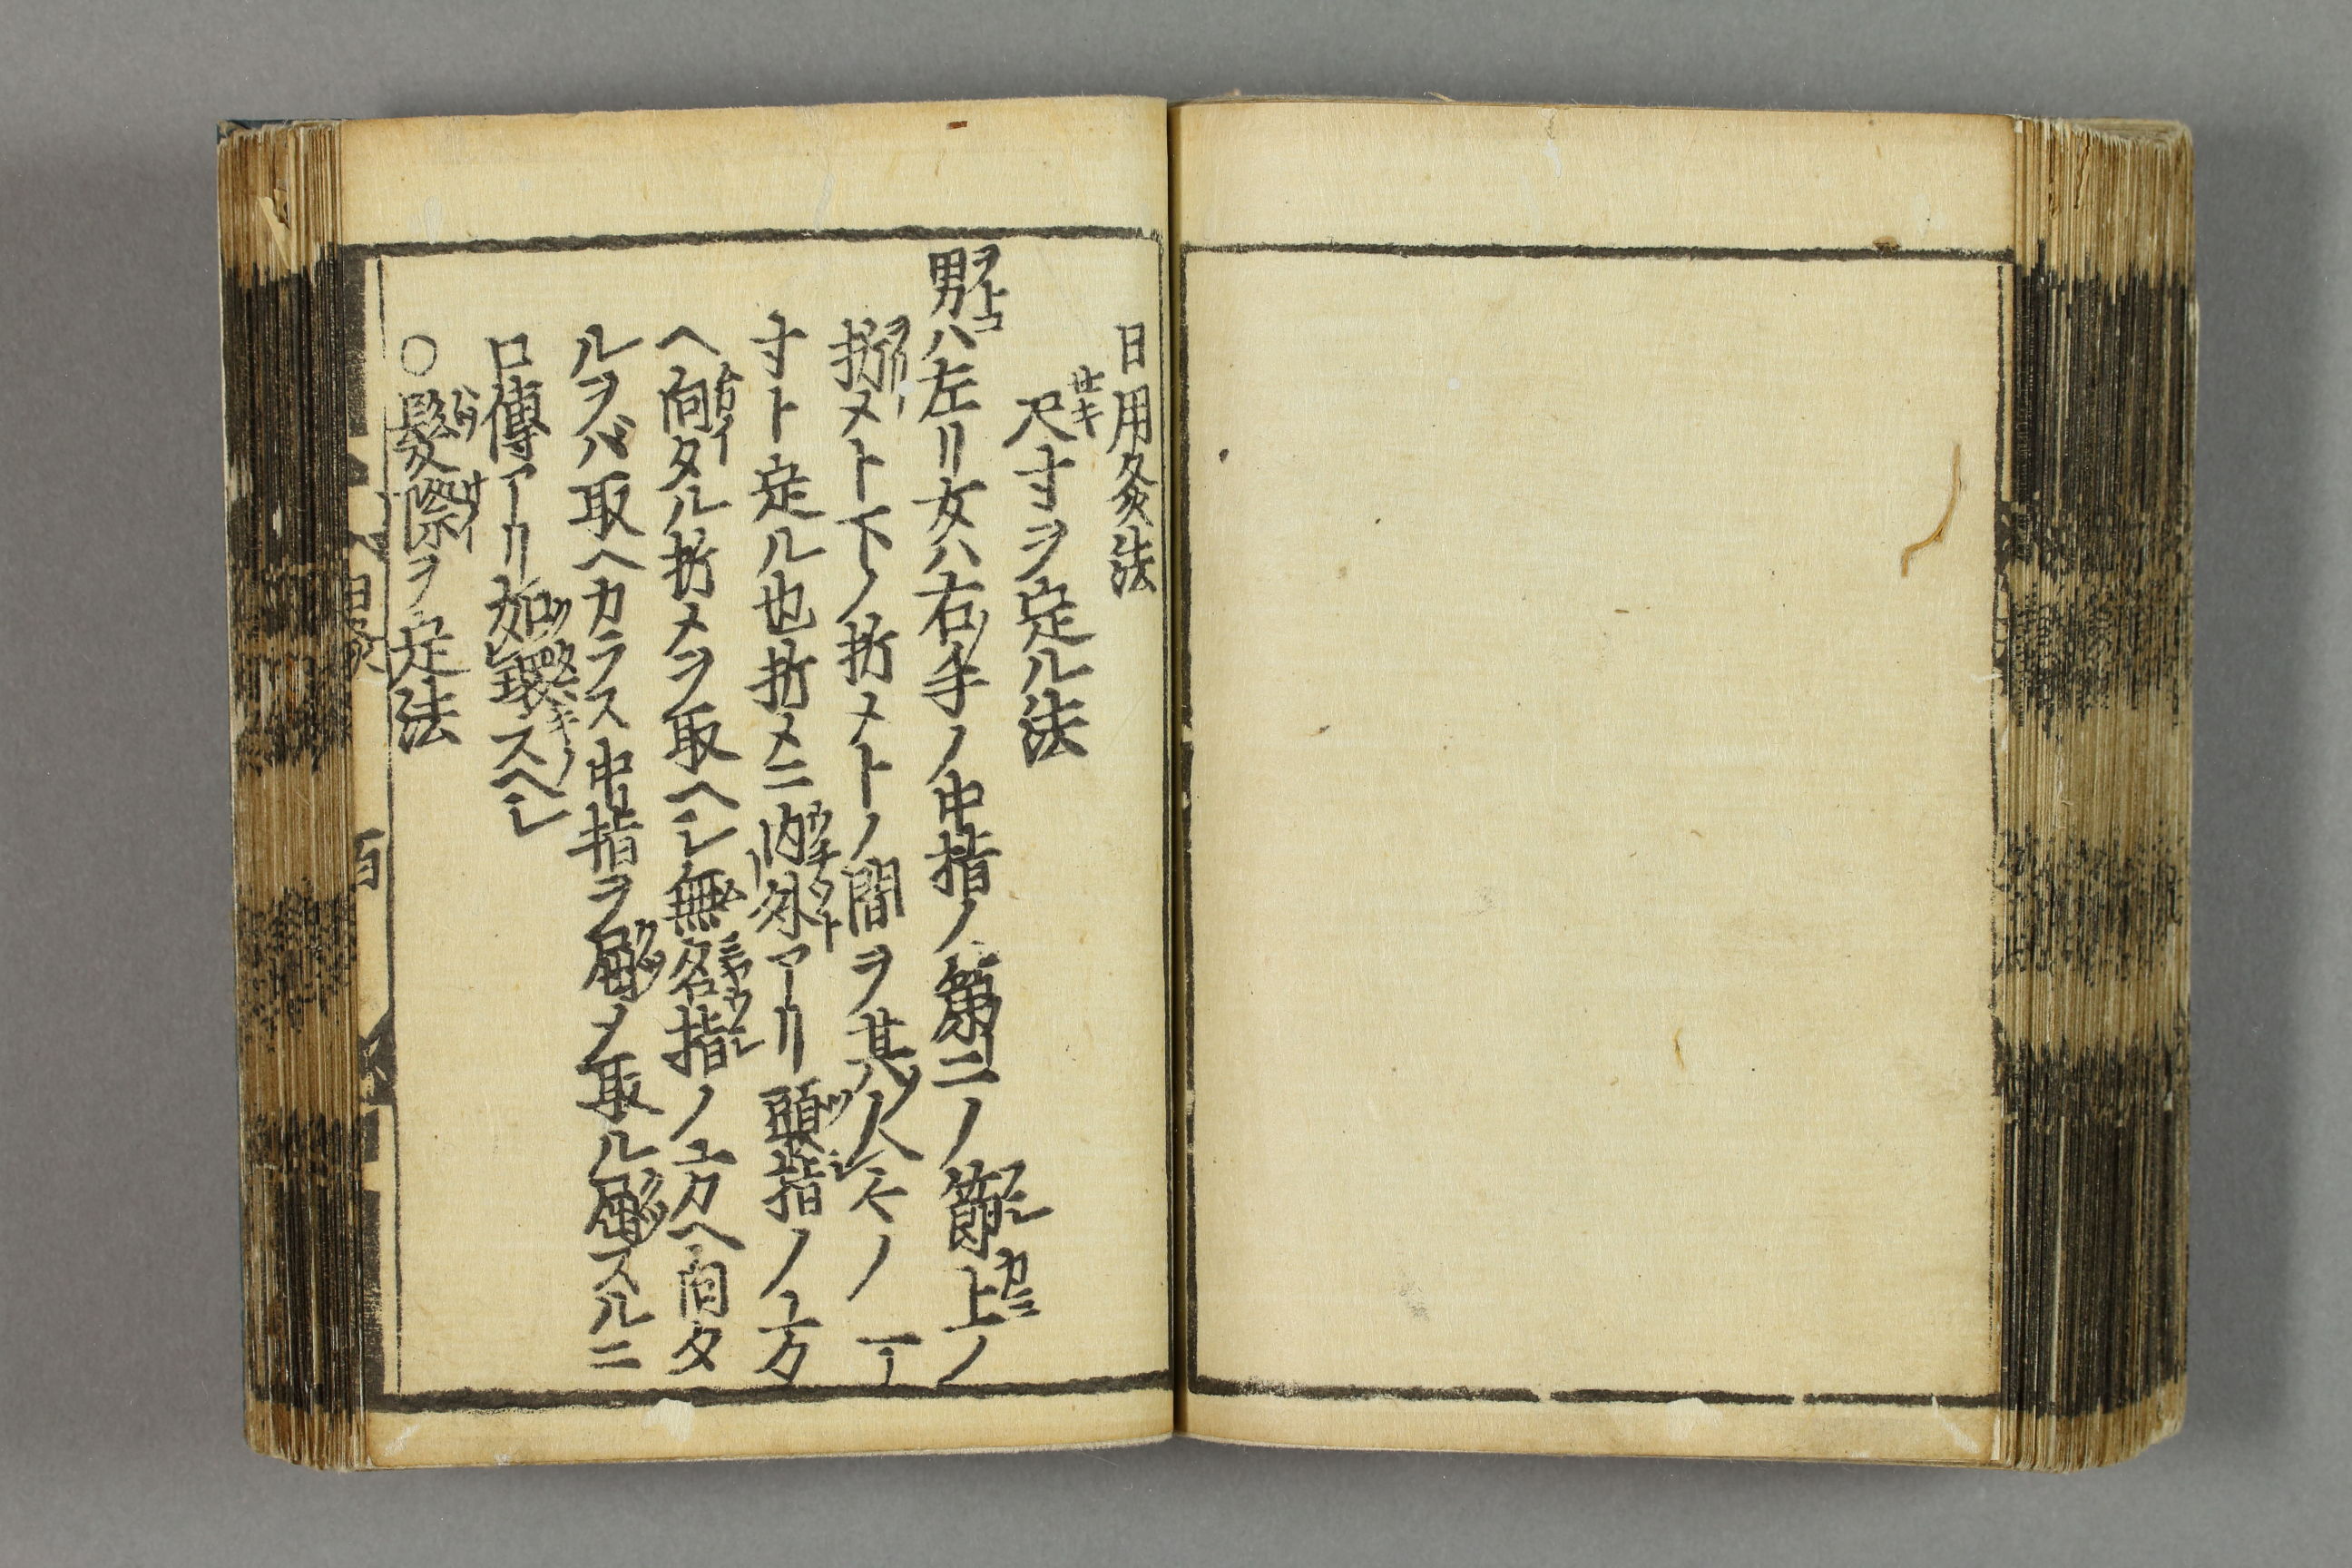 日用灸法
尺寸ヲ定ル法
男ハ左リ女ハ右手ノ中指ノ第二ノ節上ノ
折メト下ノ折メトノ間ヲ其人々ノ一
寸ト定ル也折メニ内外アリ頭指ノ方
ヘ向タル折メヲ取ヘシ無名指ノ方ヘ向タ
ルヲバ取ヘカラス中指ヲ屈メ取ル屈スルニ
口傳アリ如環スヘシ
○髮際ヲ定法